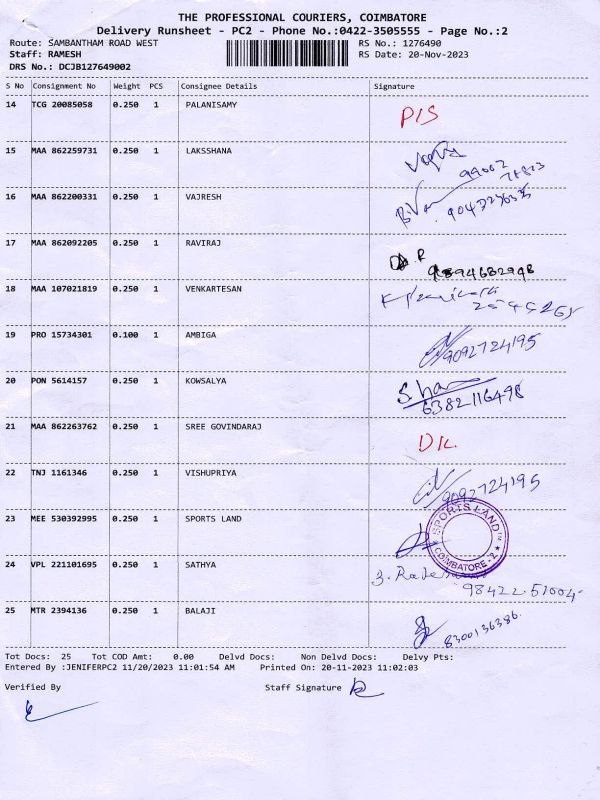 THE PROFESSIONAL COURIERS, COIMBATORE
Delivery Runsheet - PC2 - Phone No.:0422-3505555 - Page No.:2
Route: SAMBANTHAM ROAD WEST RS No.: 1276490
Staff: RAMESH RS Date: 20-Nov-2023
DRS No.: DCJB127649002
S No Consignment No Weight PCS Consignee Details Signature
14 TCG 20085058 0.250 1 PALANISAMY
P/S
15 MAA 862259731 0.250 1 LAKSSHANA
16 MAA 862200331 0.250 1 VAJRESH
17 MAA 862092205 0.250 1 RAVIRAJ
9894682948
18 MAA 107021819 0.250 1 VENKARTESAN
19 PRO 15734301 0.100 1 AMBIGA
9092724195
20 PON 5614157 0.250 1 KOWSALYA
6382116498
21 MAA 862263762 0.250 1 SREE GOVINDARAJ
D/L
22 TNJ 1161346 0.250 1 VISHUPRIYA
9092724195
23 MEE 530392995 0.250 1 SPORTS LAND
SPORTS LAND
COIMBATORE - 2
24 VPL 221101695 0.250 1 SATHYA
98422 51004
25 MTR 2394136 0.250 1 BALAJI
8300136386
Tot Docs: 25 Tot COD Amt: 0.00 Delvd Docs: Non Delvd Docs: Delvy Pts:
Entered By :JENIFERPC2 11/20/2023 11:01:54 AM Printed On: 20-11-2023 11:02:03
Verified By Staff Signature